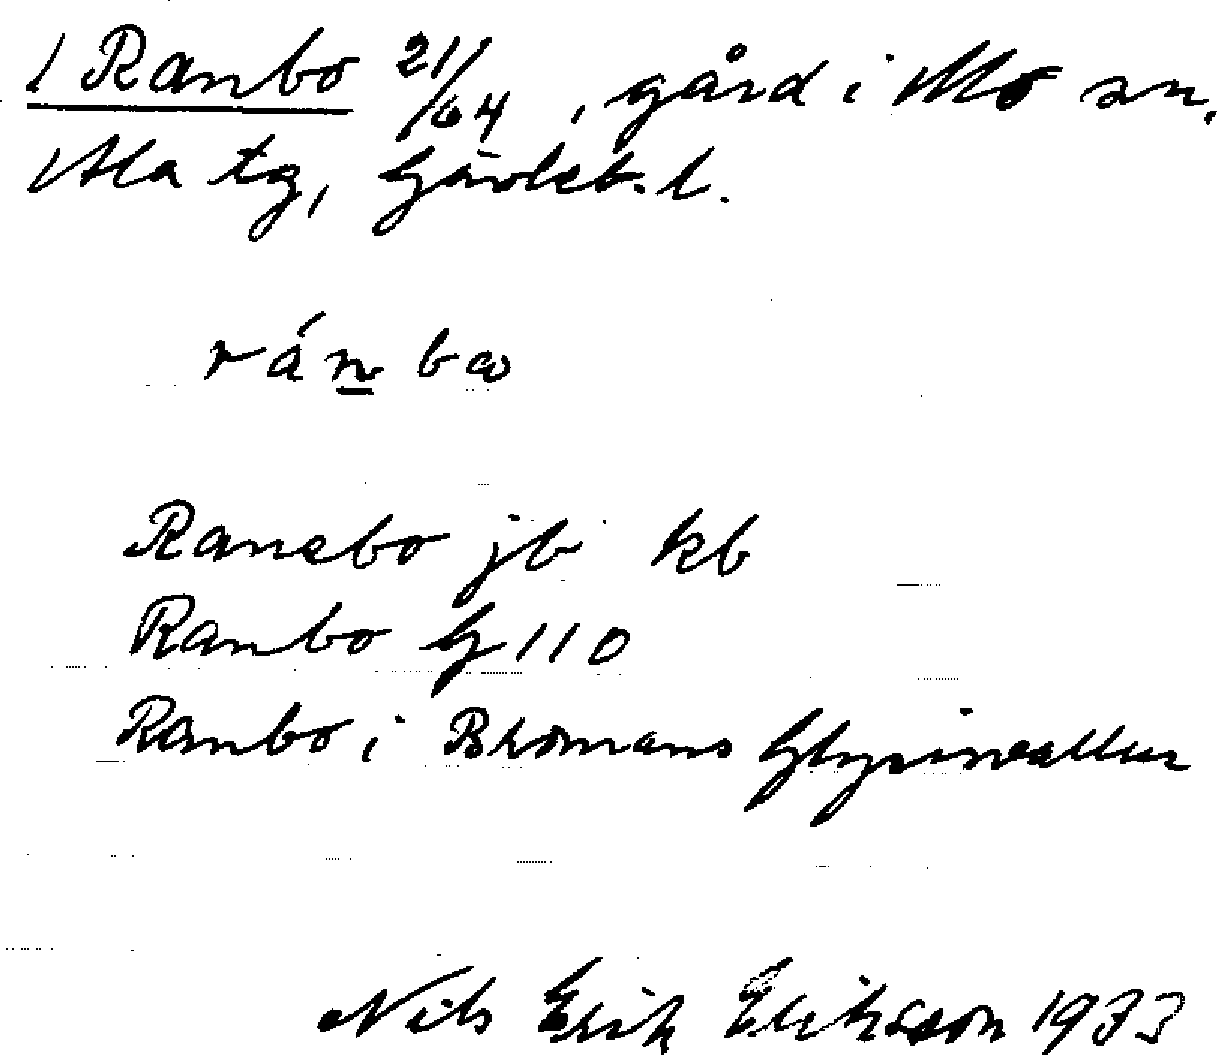 1 Ranbo 21/64, gård i Mo sn.
Ala tg, Gävleb. l.
ránbω
Ranebo jb kb
Ranbo G 110
Ranbo i Bromans Glysisvallur
Nils Erik Eriksson 1933